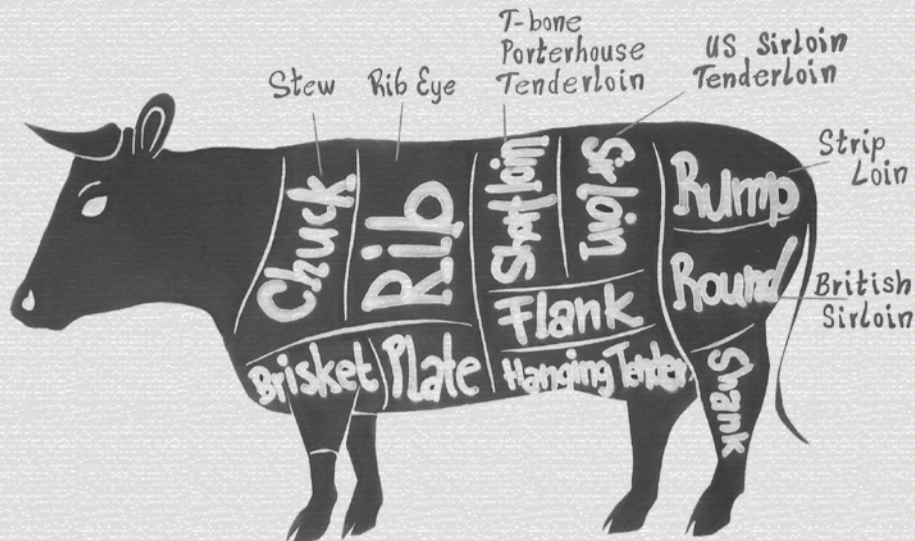 T-bone
Porterhouse
Tenderloin
US Sirloin
Tenderloin
Stew
Rib Eye
Strip
Loin
British
Sirloin
Chuck
Rib
Short loin
Sirloin
Rump
Round
Flank
Brisket
Plate
Hanging Tender
Shank